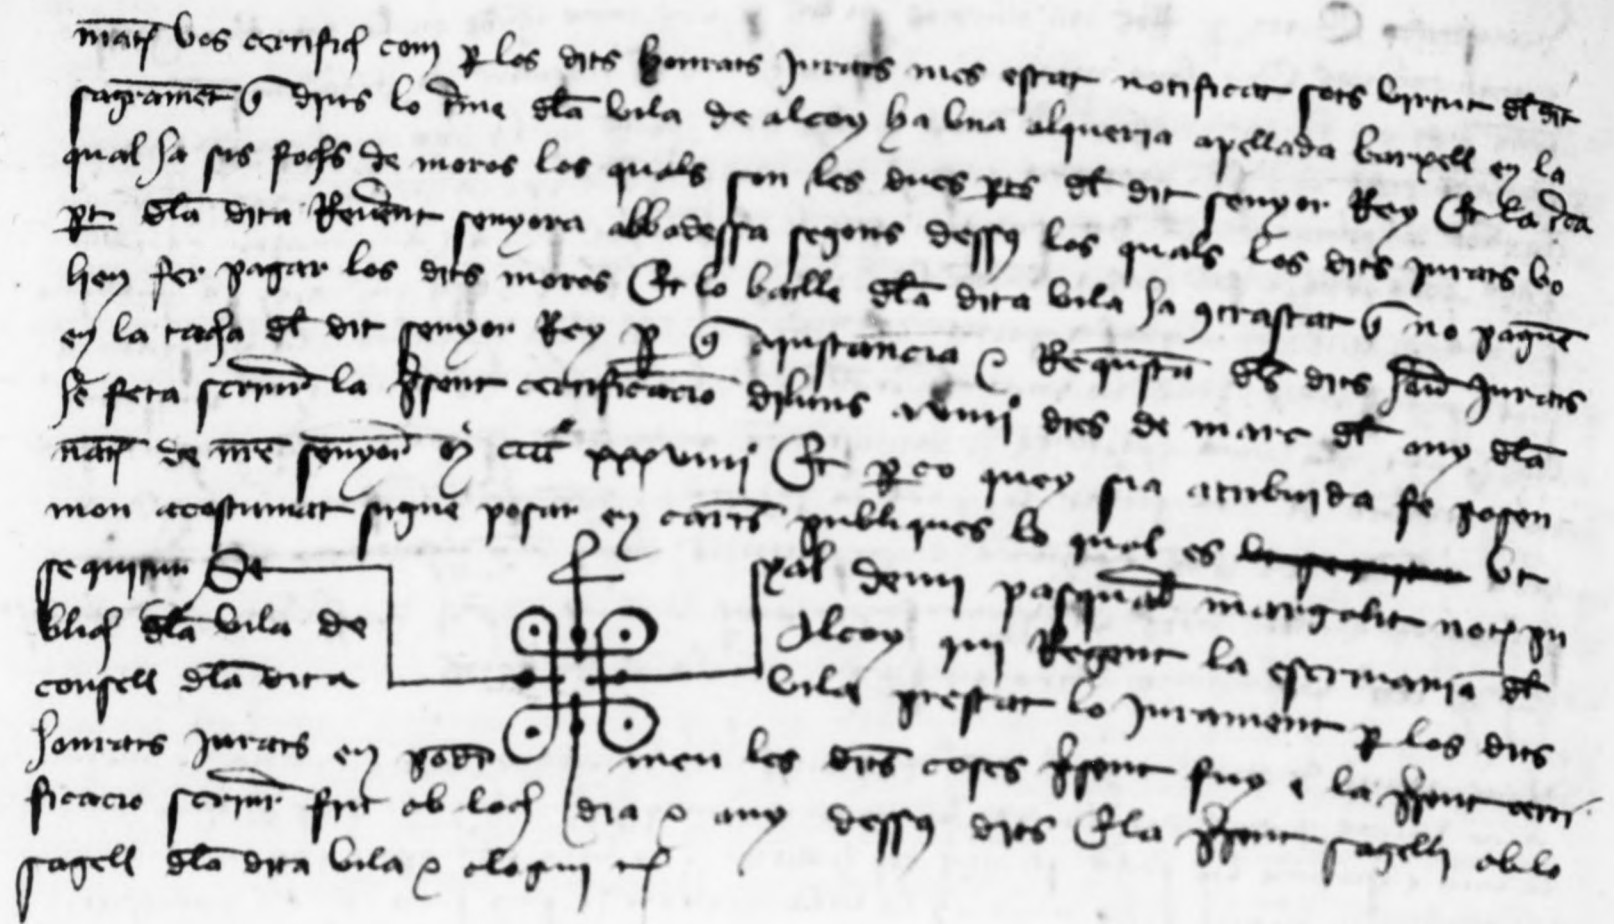 mat(eix) vos certifich com p(er) los dits honrats jurats mes estat notificat sots virtut d(e)l dit
sagrament q(ue) dins lo t(er)me d(e)la vila de alcoy ha una alqueria apellada barxell en la
qual ha sis fochs de moros los quals son les dues p(ar)ts d(e)l dit senyor Rey Et la t(er)ca
p(ar)t d(e)la dita Rever(e)nt senyora abbadessa segons dess(us) los quals los dits jurats vo
lien fer pagar los dits moros Et lo batlle d(e)la dita vila ha (con)trastat q(ue) no pague(n)
en la tacha d(e)l dit senyor Rey p(er) q(ue) a instancia e Requesta d(e)ls dits hon(ra)ts Jurats
he feta scriure la p(re)sent certificacio diluns xviiii dies de marc d(e)l any d(e)la
nat(ivitat) de n(ost)re senyor M CCCC xxxviiii Et p(er) co quey sia atribuida fe pos en
mon acostumat signe posar en cart(e)s publiques lo qual es ut
sequitur Se xal demi pasqual margalit not(ari) pu
blich d(e)la vila de Alcoy qui Regent la escrivania d(e)l
consell d(e)la dita vila prestat lo jurament p(er) los dits
honrats jurats en poder meu les dit(e)s coses p(re)sent fuy e la p(re)sent certi
ficacio scriure fiu ab loch dia e any dess(us) dits E la p(re)sent sagelli ab lo
sagell d(e)la dita vila e clogui